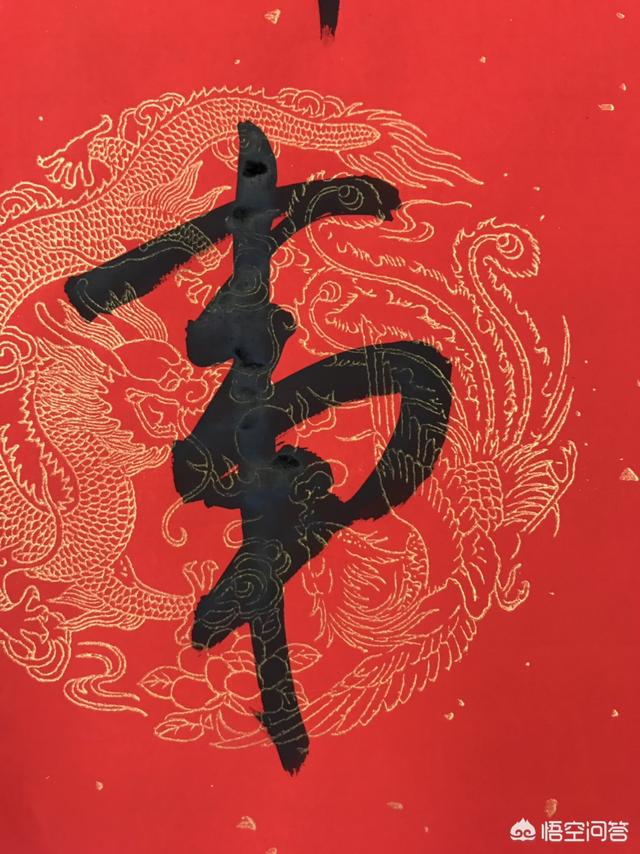 事
悟空问答